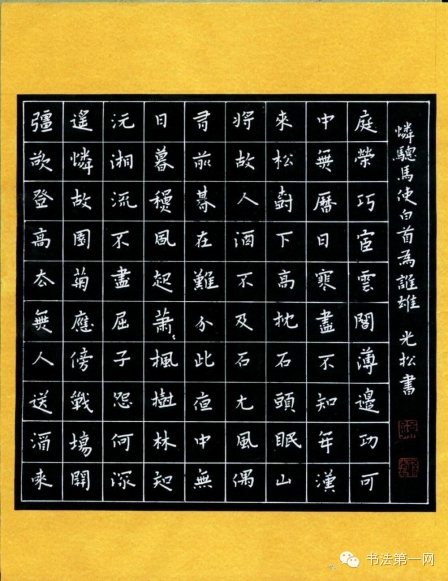 彊欲登高去無人送酒來
遥憐故園菊應傍戰場開
沅湘流不盡屈子怨何深
日暮穐風起蕭々楓樹林知
有前朞在難分此夜中無
將故人酒不及石尤風偶
來松樹下高枕石頭眠山
中無曆日寒盡不知年漢
庭榮巧宦雲閣薄邊功可
憐驄馬使白首為誰雄 光松書
书法第一网